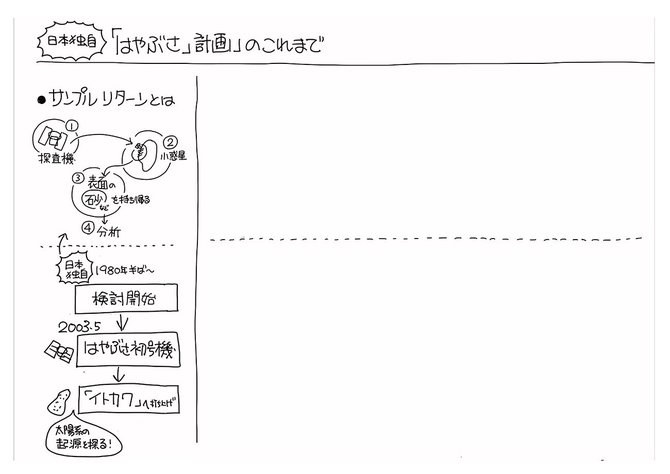 日本独自
「はやぶさ」計画」のこれまで
●サンプルリターンとは
①
探査機
②
小惑星
③表面の
砂など
を持ち帰る
④分析
日本
独自
1980年半ば〜
検討開始
2003.5
はやぶさ初号機
「イトカワ」へ打上げ
太陽系の
起源を探る!